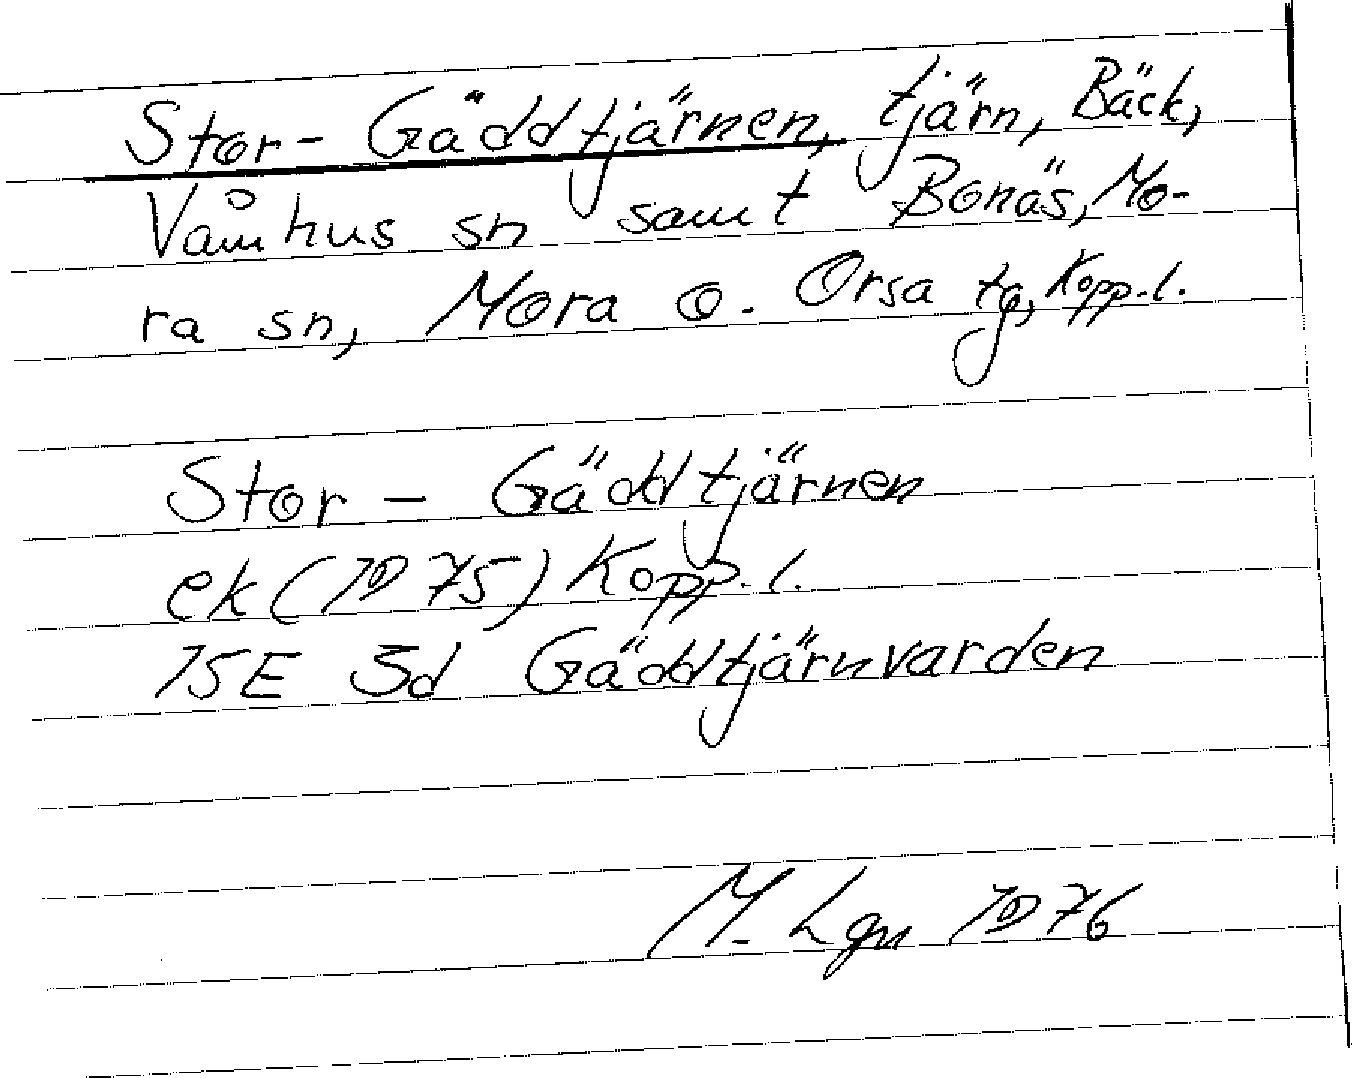 Stor-Gäddtjärnen, tjärn, Bäck,
Våmhus sn samt Bonäs, Mo-
ra sn, Mora o. Orsa tg, Kopp. l.
Stor-Gäddtjärnen
ek (1975) Kopp. l.
15E 3d Gäddtjärnvarden
M. Lgn 1976